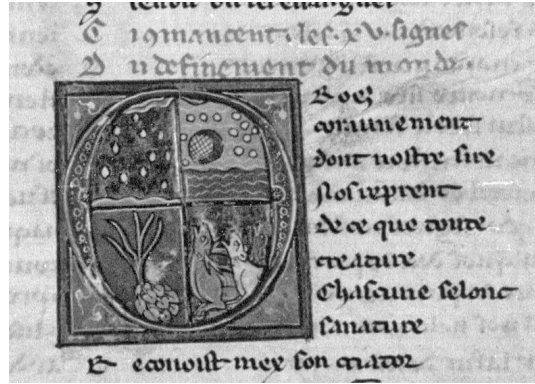 C i 9mancent .les. xv. signes
D u definement du monde
oez
comunement
dont nostre sire
Nos reprent
de ce que toute
creature
Chascune selonc
sa nature
R econoist miex son criator